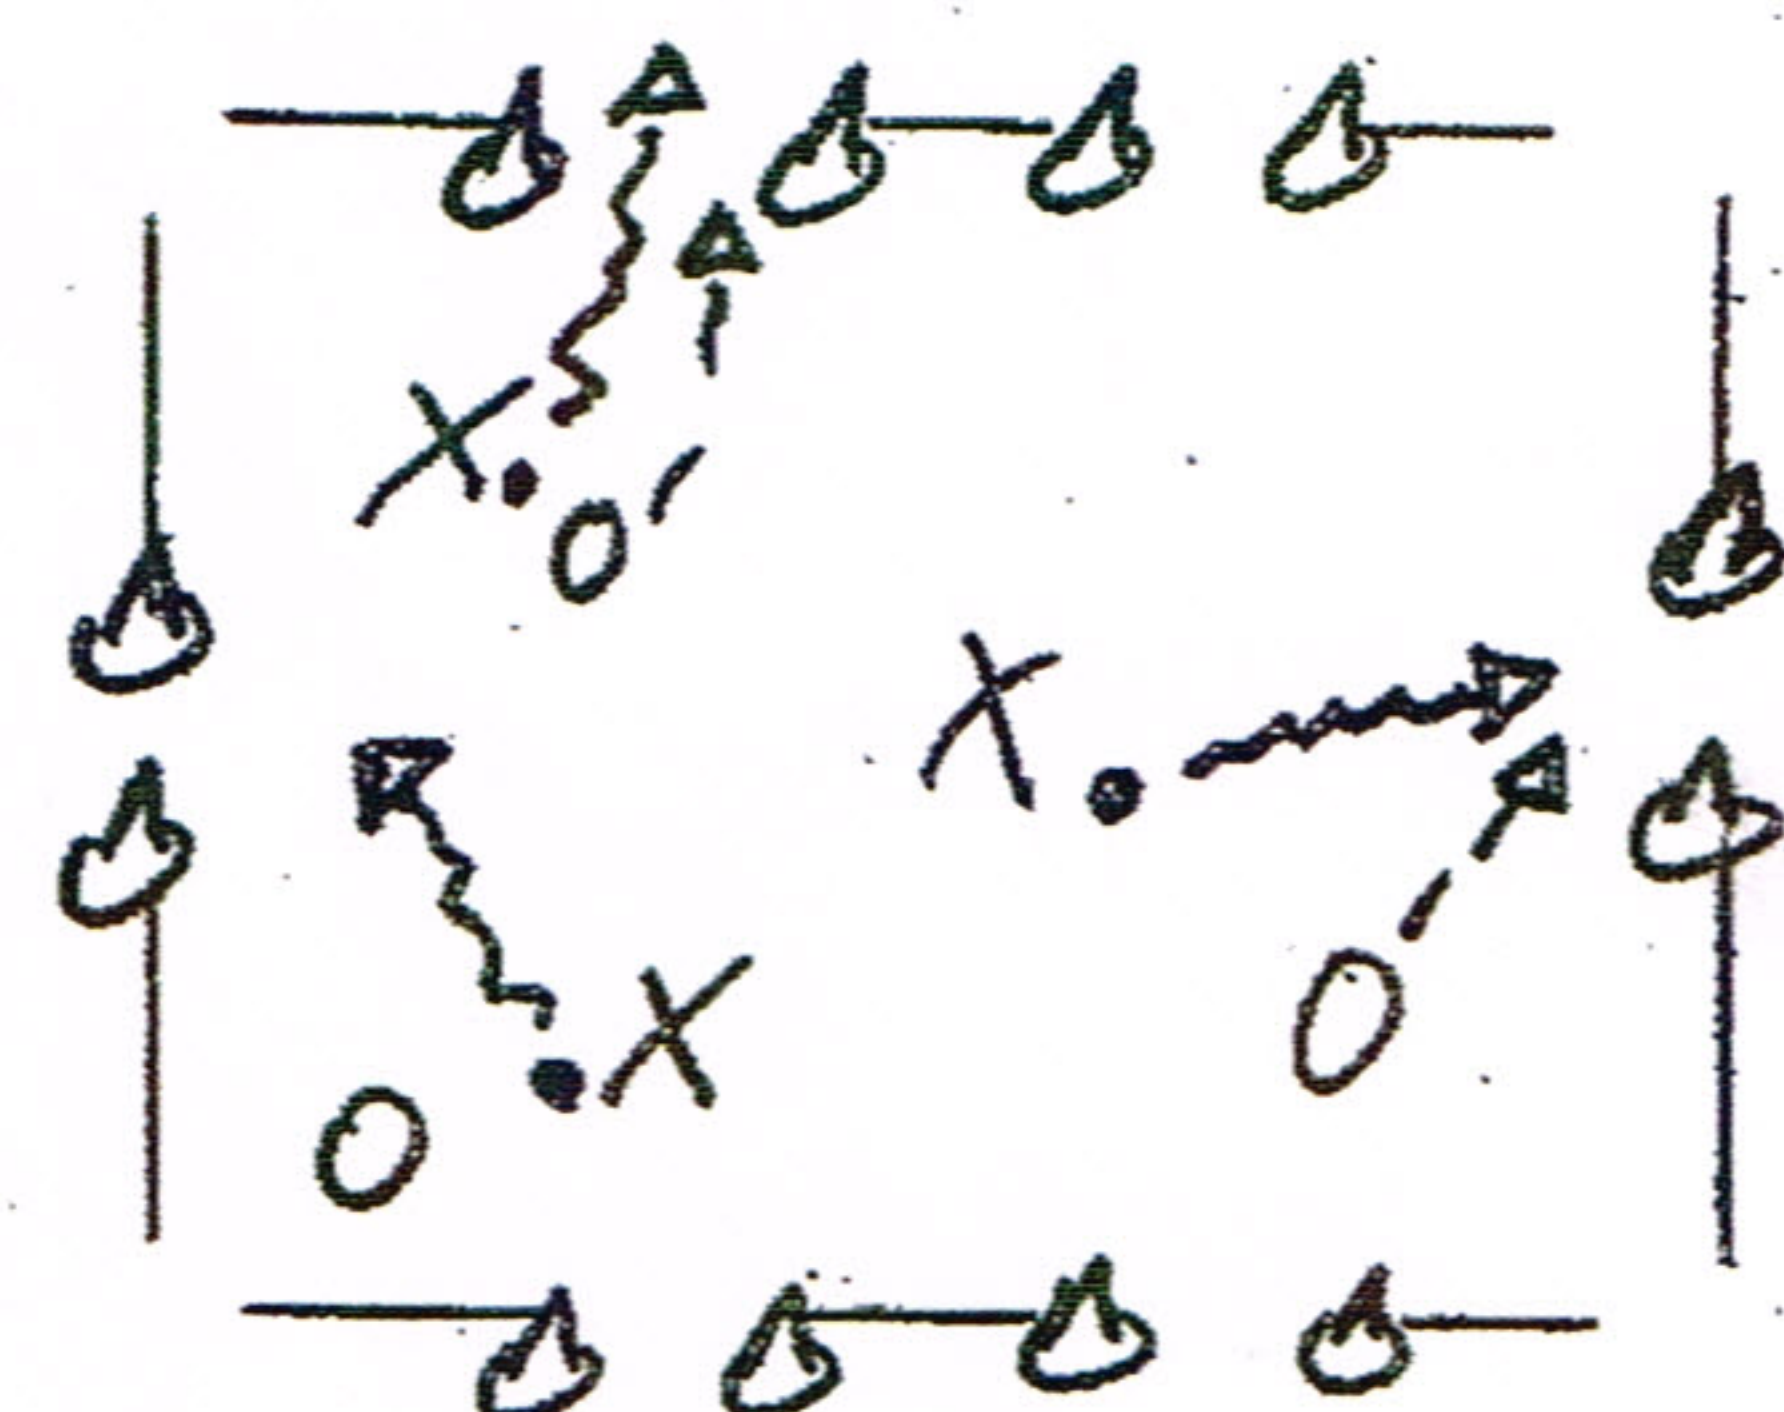 X
O
X
X
O
O